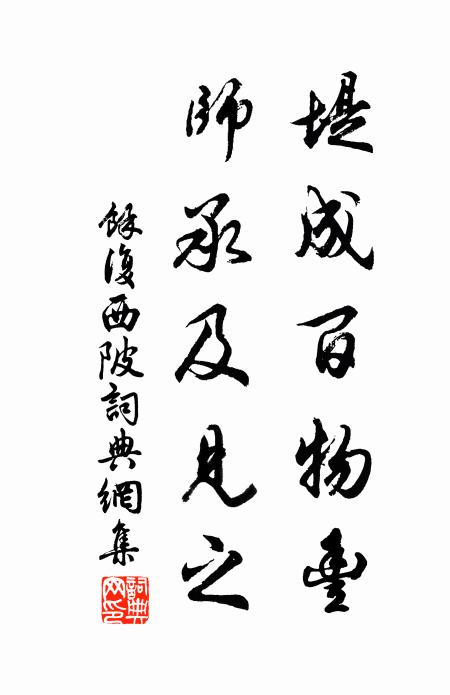 堤成百物豊
師承及見之
錄復西陂詞典網集
詞典網印